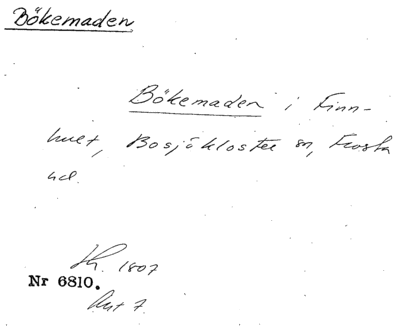 Bökemaden
Bökemaden i Finn-
hult, Bosjökloster sn, Frosta
hd.
1807
Nr 6810.
Akt 7.